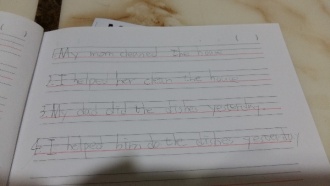 1. My mom cleaned the house
2. I helped her clean the house.
3. My dad did the dishes yesterday.
4. I helped him do the dishes yesterday